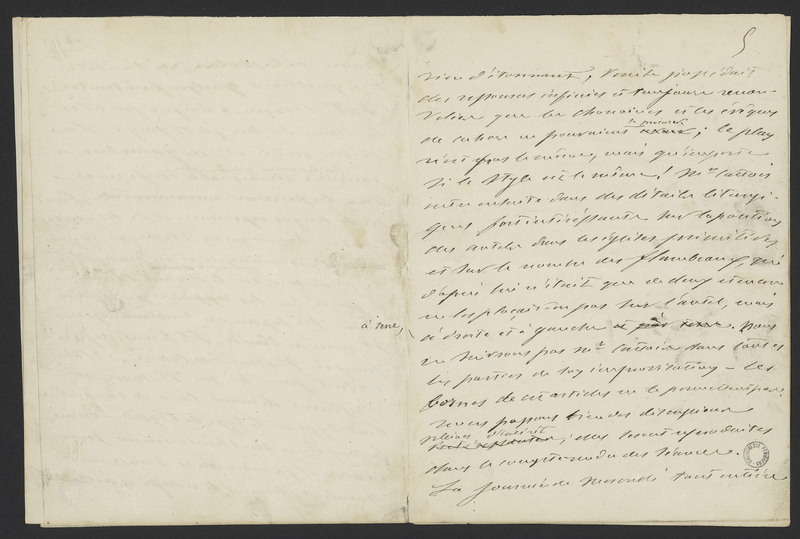 5
rien d'étonnant, Venite possédait
des ressources infinies et toujours renou-
veler que les chanoines et les évêques
de cahors ne pouvaient se procurer ; le plan
n'est pas le même, mais qu'importe
si le style est le même ! Mr Cattois
entre ensuite dans des détails liturgi-
ques fort intéressants sur la position
des autels dans les églises primitives
et sur le nombre des flambeaux, qui
d'après lui n'était que de deux et encore
ne les plaçait-on pas sur l'autel, mais
à terre,
à droite et à gauche. Nous
ne suivrons pas Mr Cattois dans toutes
les parties de son improvisation – les
bornes de cet article ne le permettent pas.
nous passons bien des discussions
pleines d'intérêt ; elles seront reproduites
dans le compte rendu des séances.
La journée de mercredi tout entière